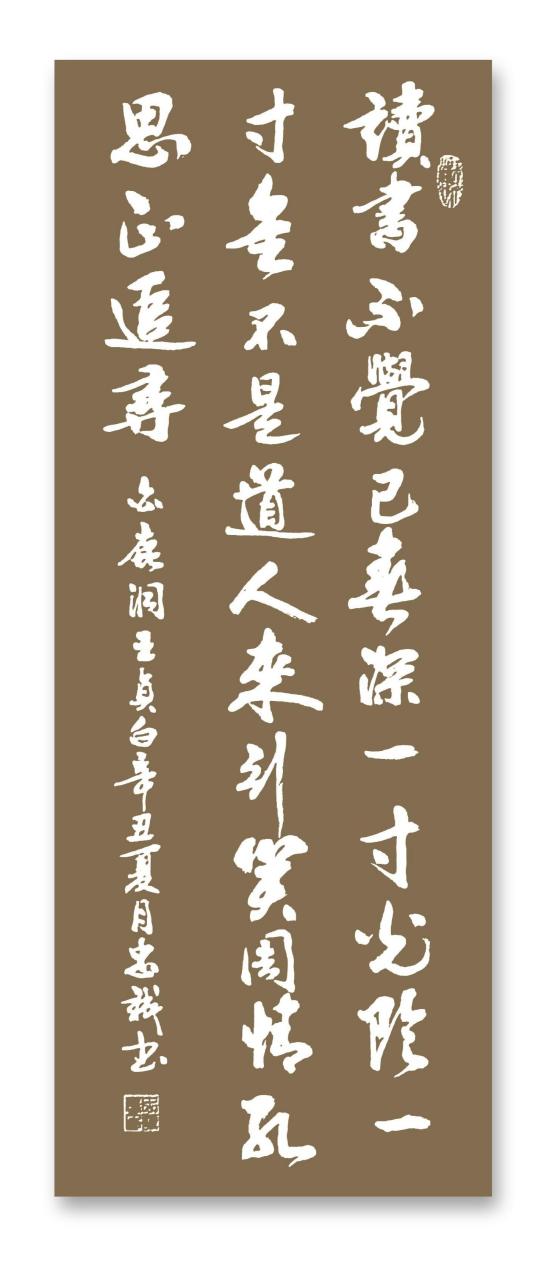 讀書不覺已春深一寸光陰一
寸金不是道人來引笑周情孔
思正追尋
白鹿洞王貞白辛丑夏月忠書